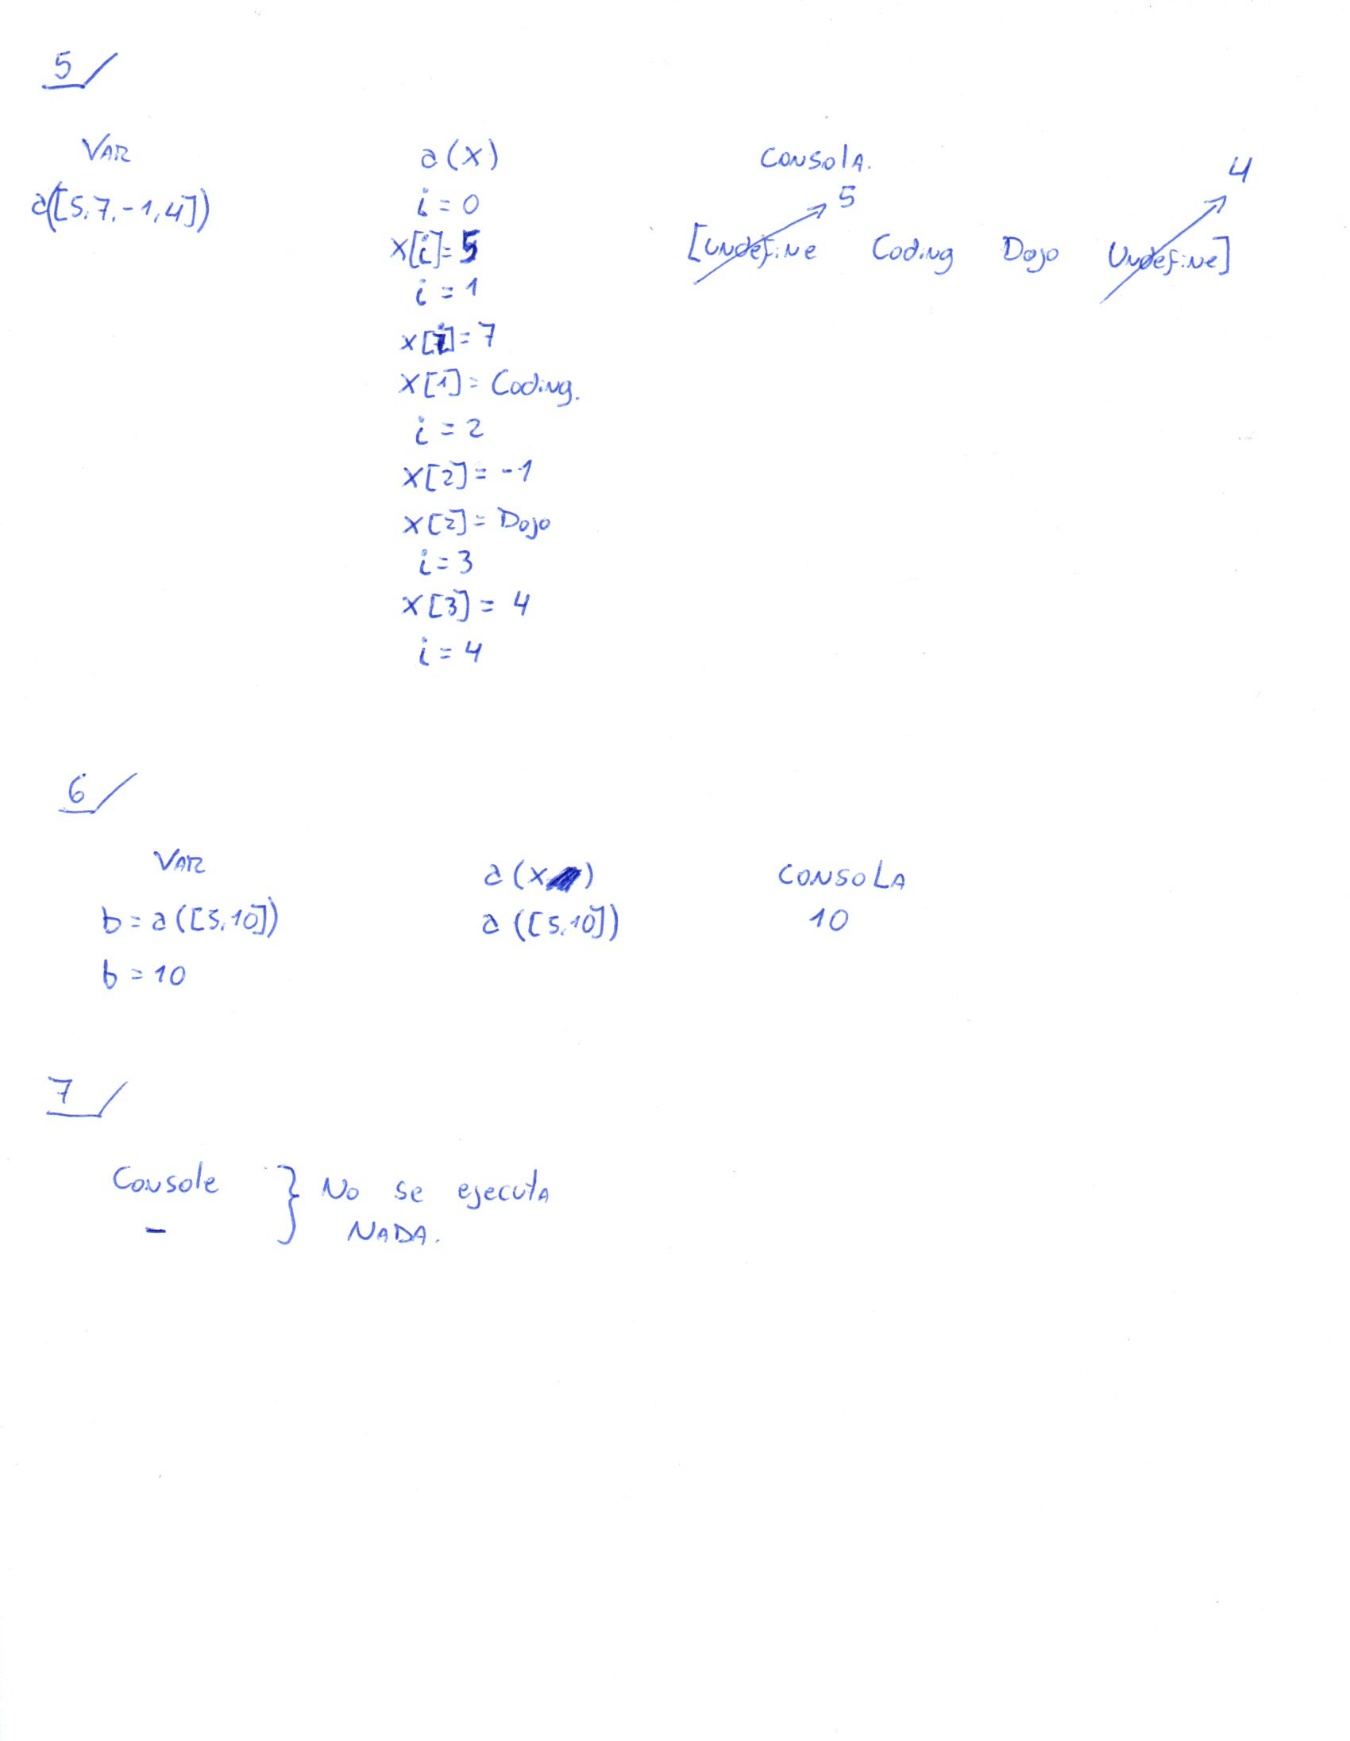 5/
VAR
a([5,7,-1,4])
a(x)
i = 0
x[i]= 5
i = 1
x[i]= 7
x[1]= Coding.
i = 2
x[2]= -1
x[2]= Dojo
i = 3
x[3] = 4
i = 4
CONSOLA.
5
4
[Undefine Coding Dojo Undefine]
6/
VAR
b = a([5,10])
b = 10
a(x)
a([5,10])
CONSOLA
10
7/
Console
-
} No se ejecuta
NADA.